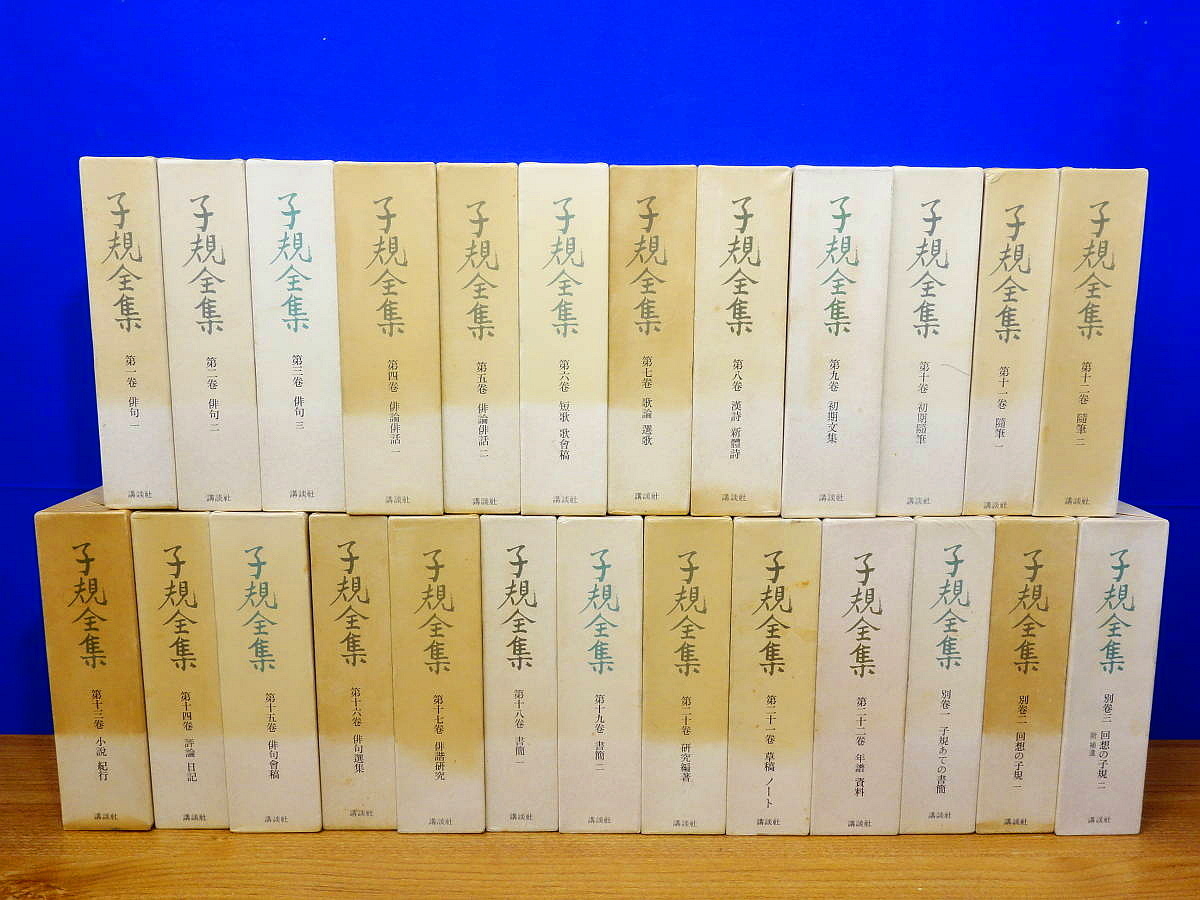 子規全集
第一卷 俳句 一
講談社
子規全集
第二卷 俳句 二
講談社
子規全集
第三卷 俳句 三
講談社
子規全集
第四卷 俳論俳話 一
講談社
子規全集
第五卷 俳論俳話 二
講談社
子規全集
第六卷 短歌 歌會稿
講談社
子規全集
第七卷 歌論 選歌
講談社
子規全集
第八卷 漢詩 新體詩
講談社
子規全集
第九卷 初期文集
講談社
子規全集
第十卷 初期隨筆
講談社
子規全集
第十一卷 隨筆 一
講談社
子規全集
第十二卷 隨筆 二
講談社
子規全集
第十三卷 小說 紀行
講談社
子規全集
第十四卷 評論 日記
講談社
子規全集
第十五卷 俳句會稿
講談社
子規全集
第十六卷 俳句選集
講談社
子規全集
第十七卷 俳諧研究
講談社
子規全集
第十八卷 書簡 一
講談社
子規全集
第十九卷 書簡 二
講談社
子規全集
第二十卷 研究編著
講談社
子規全集
第二十一卷 草稿 ノート
講談社
子規全集
第二十二卷 年譜 資料
講談社
子規全集
別卷一 子規あての書簡
講談社
子規全集
別卷二 回想の子規 一
講談社
子規全集
別卷三 回想の子規 二
附 補遺
講談社